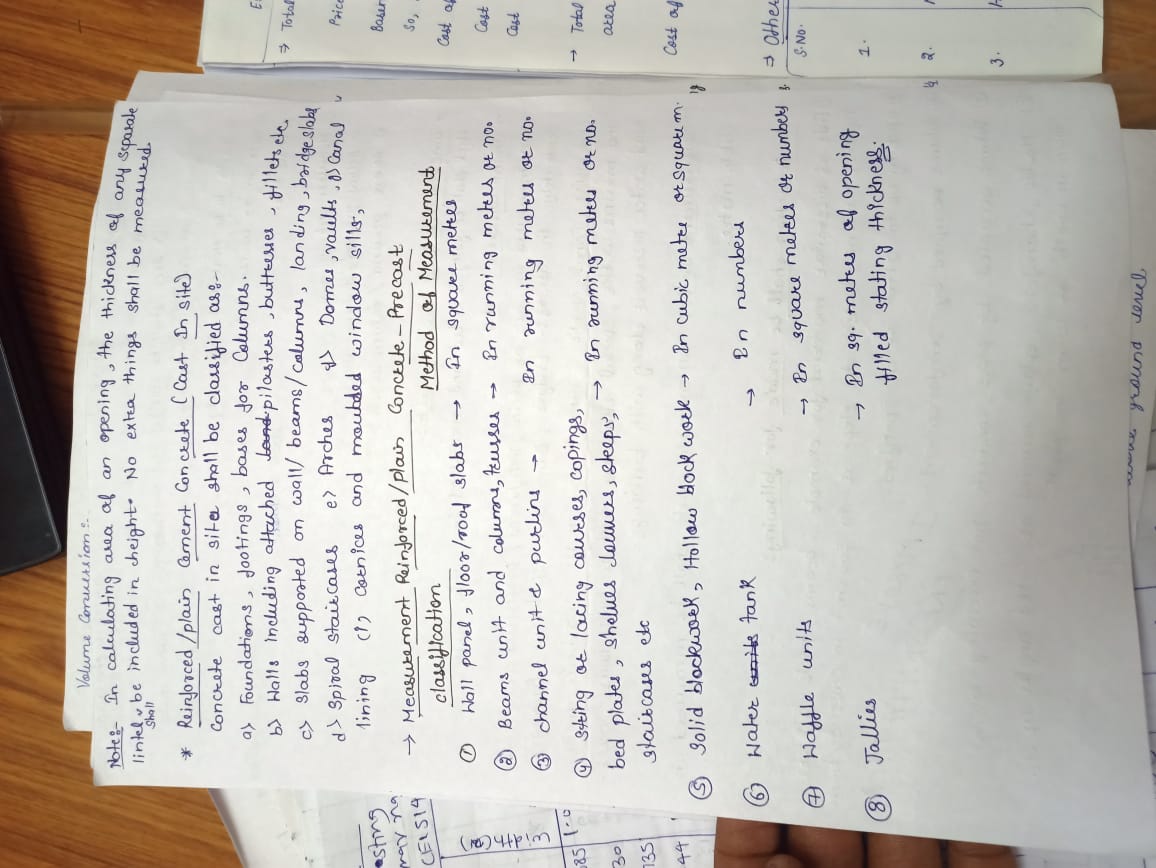 Volume Conversion :-
Note:- In calculating area of an opening, the thickness of any separate
lintel shall be included in cheight. No extra things shall be measured.
* Reinforced/plain Cement Concrete (Cast In site)
Concrete cast in site shall be classified as:-
a) Foundations, footings, bases for Columns.
b) Walls including attached pilasters, buttresses, fillets etc,
c) Slabs supported on wall/beams/columns, landing, bridge slabs
d) Spiral staircases e) Arches f) Domes, vaults, g) Canal
lining (i) Cornices and moulded window sills,
→ Measurement Reinforced/plain Concrete - Precast
classification Method of Measurement
① Wall panel, floor/roof slabs → In square metres
② Beams unit and columns, trusses → In running metres or no.
③ channel unit & purlins → In running metres or no.
④ String or lacing courses, copings,
bed plates, shelves louvers, steeps, → In running metres or no.
staircases etc
⑤ Solid blockwork, Hollow block work → In cubic metre or square m.
⑥ Water tank → In numbers
⑦ Waffle units → In square metres or numbers
⑧ Jallies → In sq. metres of opening
filled stating thickness.
ground level
esting
may na
CELS14
width (m)
85 1.0
30
735
44
⇒ Total
Price
So,
Cost of
Cost
Cost
→ Total
area
Cost of
⇒ Other
S.No.
1.
2.
3.